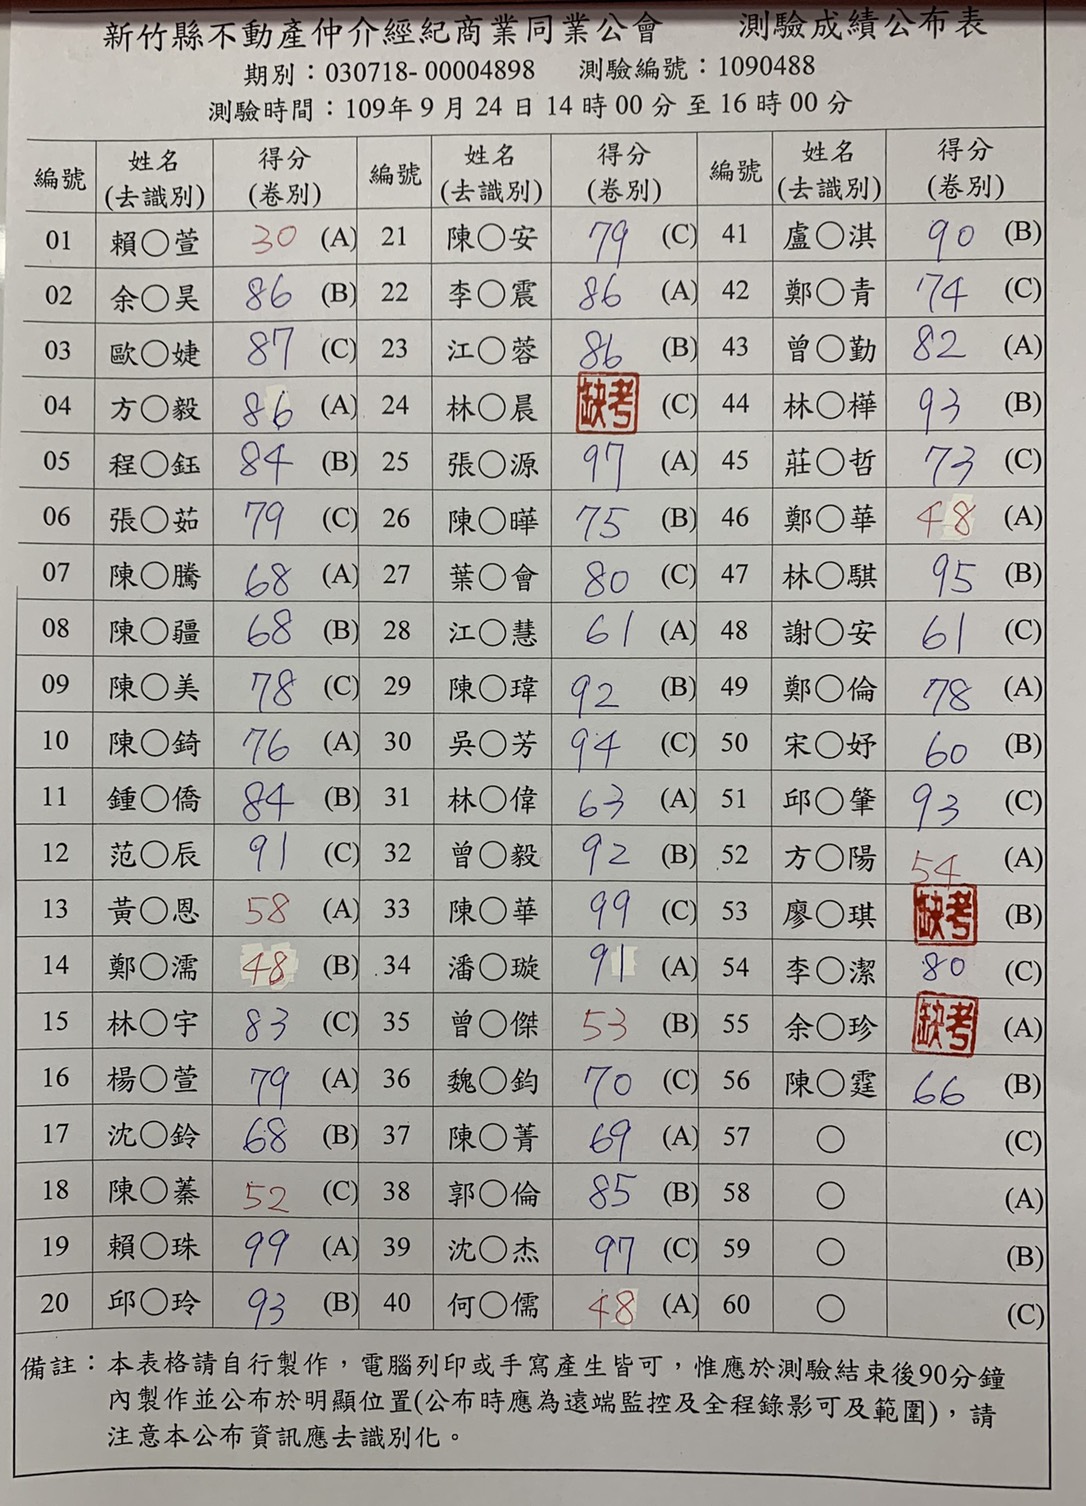 新竹縣不動產仲介經紀商業同業公會 測驗成績公布表
期別：030718- 00004898 測驗編號：1090488
測驗時間：109年 9 月 24 日 14 時 00 分 至 16 時 00 分
編號 姓名(去識別) 得分(卷別) 編號 姓名(去識別) 得分(卷別) 編號 姓名(去識別) 得分(卷別)
01 賴〇萱 30 (A) 21 陳〇安 79 (C) 41 盧〇淇 90 (B)
02 余〇昊 86 (B) 22 李〇震 86 (A) 42 鄭〇青 74 (C)
03 歐〇婕 87 (C) 23 江〇蓉 86 (B) 43 曾〇勤 82 (A)
04 方〇毅 86 (A) 24 林〇晨 缺考 (C) 44 林〇樺 93 (B)
05 程〇鈺 84 (B) 25 張〇源 97 (A) 45 莊〇哲 73 (C)
06 張〇茹 79 (C) 26 陳〇曄 75 (B) 46 鄭〇華 48 (A)
07 陳〇騰 68 (A) 27 葉〇會 80 (C) 47 林〇騏 95 (B)
08 陳〇疆 68 (B) 28 江〇慧 61 (A) 48 謝〇安 61 (C)
09 陳〇美 78 (C) 29 陳〇瑋 92 (B) 49 鄭〇倫 78 (A)
10 陳〇錡 76 (A) 30 吳〇芳 94 (C) 50 宋〇妤 60 (B)
11 鍾〇僑 84 (B) 31 林〇偉 63 (A) 51 邱〇肇 93 (C)
12 范〇辰 91 (C) 32 曾〇毅 92 (B) 52 方〇陽 54 (A)
13 黃〇恩 58 (A) 33 陳〇華 99 (C) 53 廖〇琪 缺考 (B)
14 鄭〇濡 48 (B) 34 潘〇璇 91 (A) 54 李〇潔 80 (C)
15 林〇宇 83 (C) 35 曾〇傑 53 (B) 55 余〇珍 缺考 (A)
16 楊〇萱 79 (A) 36 魏〇鈞 70 (C) 56 陳〇霆 66 (B)
17 沈〇鈴 68 (B) 37 陳〇菁 69 (A) 57 〇 (C)
18 陳〇蓁 52 (C) 38 郭〇倫 85 (B) 58 〇 (A)
19 賴〇珠 99 (A) 39 沈〇杰 97 (C) 59 〇 (B)
20 邱〇玲 93 (B) 40 何〇儒 48 (A) 60 〇 (C)
備註：本表格請自行製作，電腦列印或手寫產生皆可，惟應於測驗結束後90分鐘
內製作並公布於明顯位置(公布時應為遠端監控及全程錄影可及範圍)，請
注意本公布資訊應去識別化。